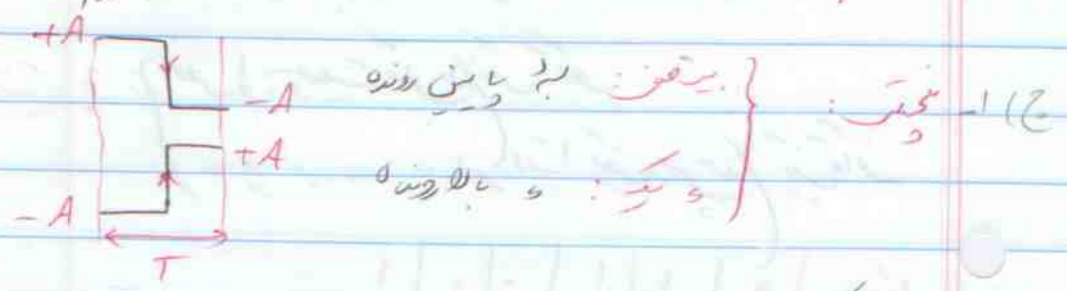 ج) ۱- منچستر :
بیت صفر: لبهٔ پایین رونده
〃 یک: 〃 بالا رونده
+A
-A
+A
-A
T